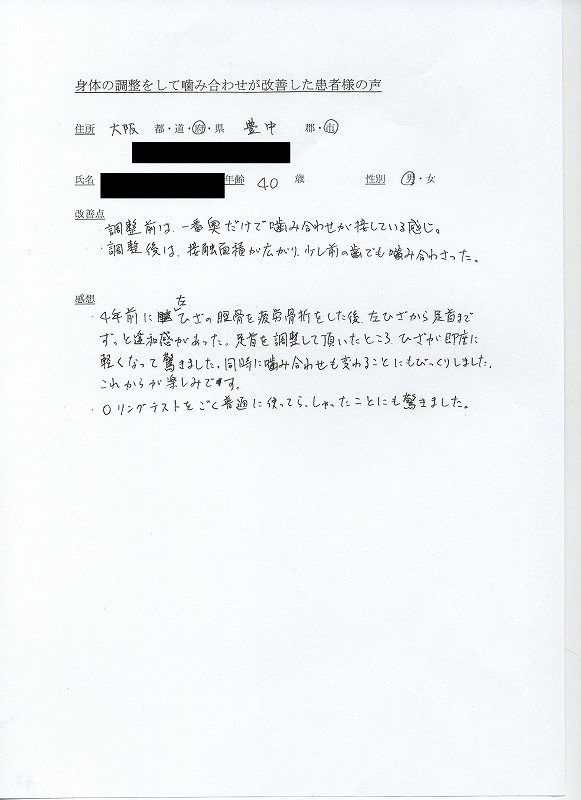 身体の調整をして噛み合わせが改善した患者様の声
住所 大阪 都・道・府・県 豊中 郡・市
氏名 年齢 40 歳 性別 男・女
改善点
・調整前は、一番奥だけで噛み合わせが接している感じ。
・調整後は、接触面積が広がり、少し前の歯でも噛み合わさった。
感想
・4年前に左ひざの脛骨を疲労骨折をした後、左ひざから足首まで
ずっと違和感があった。足首を調整して頂いたところ、ひざが即座に
軽くなって驚きました。同時に噛み合わせも変わることにもびっくりしました。
これからが楽しみです。
・Oリングテストをごく普通に使ってらっしゃったことにも驚きました。